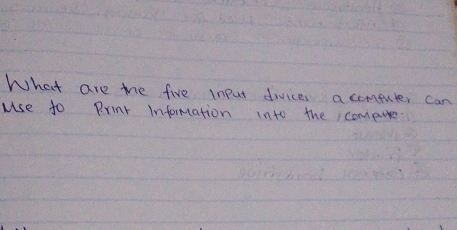 What are the five input divices a computer can
use to Print Information into the compute